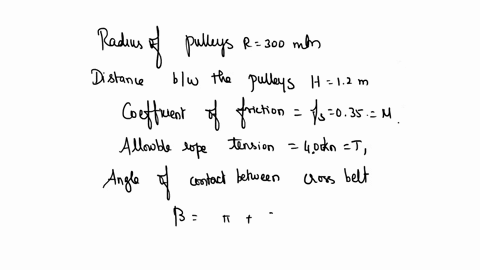 Radius of pulleys R = 300 mm
Distance b/w the pulleys H = 1.2 m
Coefficient of friction = fs = 0.35 = M.
Allowable rope tension = 4.00kn = T,
Angle of contact between cross belt
β = π +